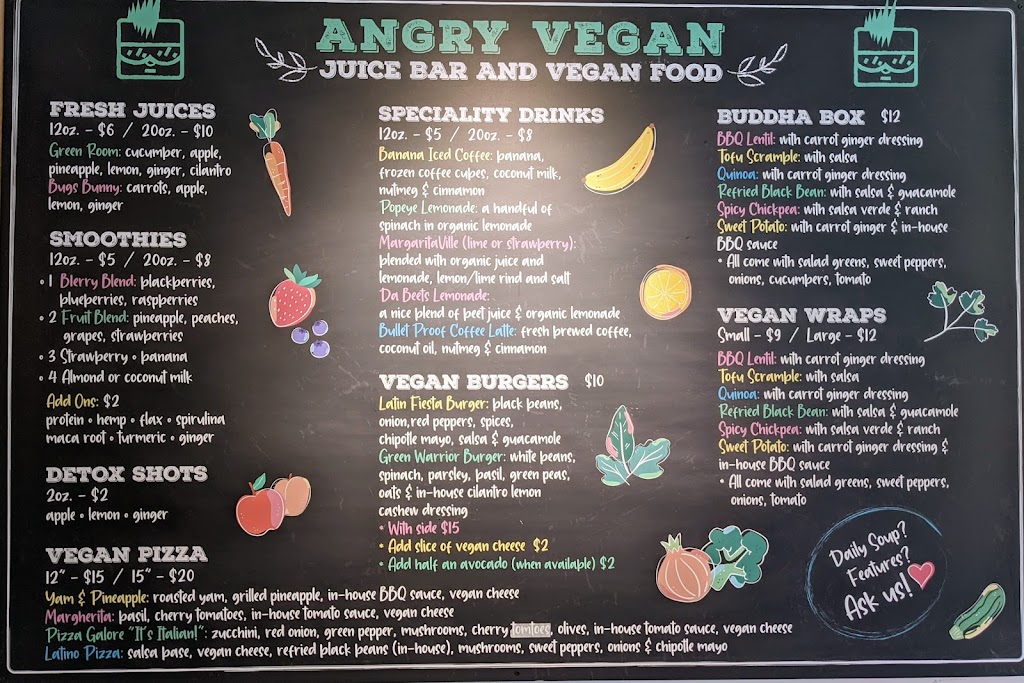 ANGRY VEGAN
JUICE BAR AND VEGAN FOOD
FRESH JUICES
12oz. - $6 / 20oz. - $10
Green Room: cucumber, apple,
pineapple, lemon, ginger, cilantro
Bugs Bunny: carrots, apple,
lemon, ginger
SMOOTHIES
12oz. - $5 / 20oz. - $8
• 1 Blerry Blend: blackberries,
blueberries, raspberries
• 2 Fruit Blend: pineapple, peaches,
grapes, strawberries
• 3 Strawberry • banana
• 4 Almond or coconut milk
Add Ons: $2
protein • hemp • flax • spirulina
maca root • turmeric • ginger
DETOX SHOTS
2oz. - $2
apple • lemon • ginger
SPECIALITY DRINKS
12oz. - $5 / 20oz. - $8
Banana Iced Coffee: banana,
frozen coffee cubes, coconut milk,
nutmeg & cinnamon
Popeye Lemonade: a handful of
spinach in organic lemonade
MargaritaVille (lime or strawberry):
blended with organic juice and
lemonade, lemon/lime rind and salt
Da Beets Lemonade:
a nice blend of beet juice & organic lemonade
Bullet Proof Coffee Latte: fresh brewed coffee,
coconut oil, nutmeg & cinnamon
VEGAN BURGERS $10
Latin Fiesta Burger: black beans,
onion, red peppers, spices,
chipotle mayo, salsa & guacamole
Green Warrior Burger: white beans,
spinach, parsley, basil, green peas,
oats & in-house cilantro lemon
cashew dressing
• With side $15
• Add slice of vegan cheese $2
• Add half an avocado (when available) $2
BUDDHA BOX $12
BBQ Lentil: with carrot ginger dressing
Tofu Scramble: with salsa
Quinoa: with carrot ginger dressing
Refried Black Bean: with salsa & guacamole
Spicy Chickpea: with salsa verde & ranch
Sweet Potato: with carrot ginger & in-house
BBQ sauce
• All come with salad greens, sweet peppers,
onions, cucumbers, tomato
VEGAN WRAPS
Small - $9 / Large - $12
BBQ Lentil: with carrot ginger dressing
Tofu Scramble: with salsa
Quinoa: with carrot ginger dressing
Refried Black Bean: with salsa & guacamole
Spicy Chickpea: with salsa verde & ranch
Sweet Potato: with carrot ginger dressing &
in-house BBQ sauce
• All come with salad greens, sweet peppers,
onions, tomato
Daily Soup?
Features?
Ask us!
VEGAN PIZZA
12" - $15 / 15" - $20
Yam & Pineapple: roasted yam, grilled pineapple, in-house BBQ sauce, vegan cheese
Margherita: basil, cherry tomatoes, in-house tomato sauce, vegan cheese
Pizza Galore "It's Italian!": zucchini, red onion, green pepper, mushrooms, cherry tomtoes, olives, in-house tomato sauce, vegan cheese
Latino Pizza: salsa base, vegan cheese, refried black beans (in-house), mushrooms, sweet peppers, onions & chipotle mayo